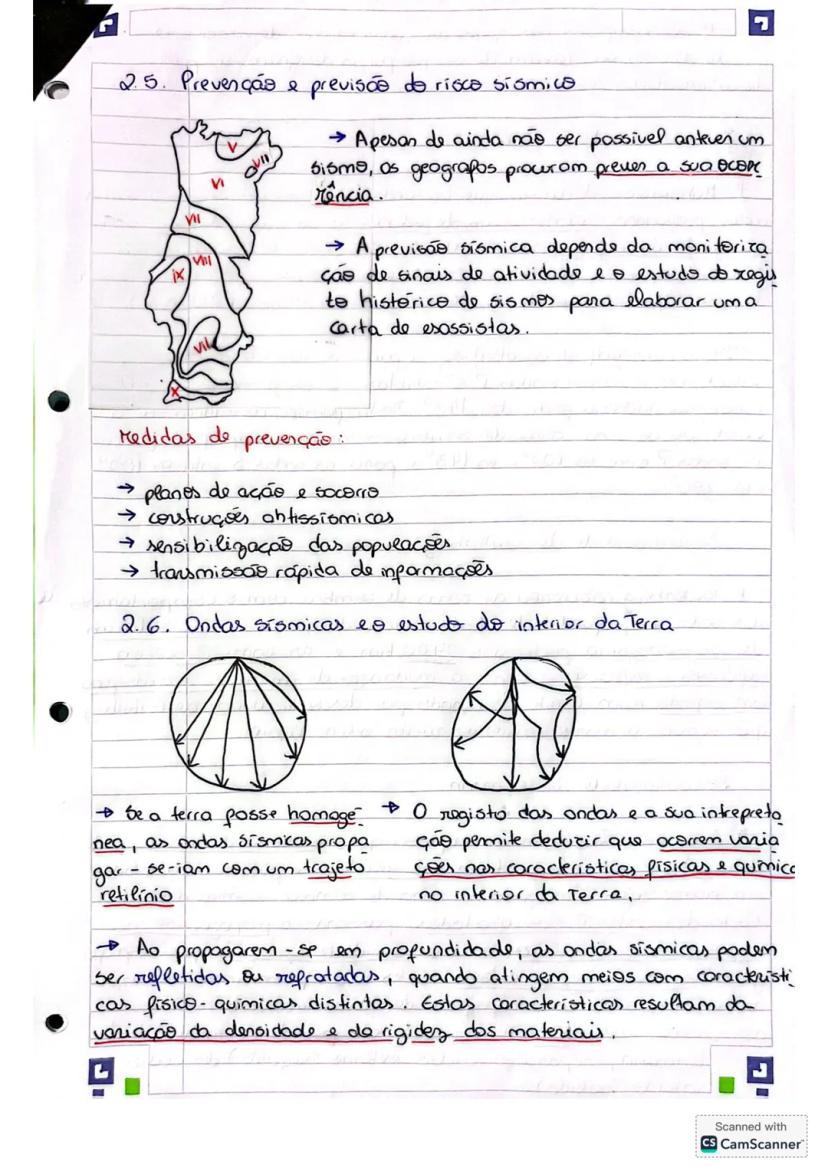 2.5. Prevenção e previsão do risco sísmico
→ Apesar de ainda não ser possível antever um
sismo, os geografos procuram prever a sua ocor
rência.
→ A previsão sísmica depende da monitoriza
ção de sinais de atividade e o estudo do regis
to histórico de sismos para elaborar uma
carta de esossistas.
V
VII
VI
VII
VIII
IX
VII
X
Medidas de prevenção:
→ planos de ação e socorro
→ construções antissísmicas
→ sensibilização das populações
→ transmissão rápida de informações
2.6. Ondas sísmicas e o estudo do interior da Terra
→ Se a terra fosse homogé
nea, as ondas sísmicas propa
gar-se-iam com um trajeto
retilínio
→ O registo das ondas e a sua intrepreta
ção permite deduzir que ocorrem varia
ções nas características físicas e químicc
no interior da Terra.
→ Ao propagarem-se em profundidade, as ondas sísmicas podem
ser refletidas ou refratadas, quando atingem meios com característi
cas físico-químicas distintas. Estas características resultam da
variação da densidade e da rigidez dos materiais.
Scanned with
CS CamScanner